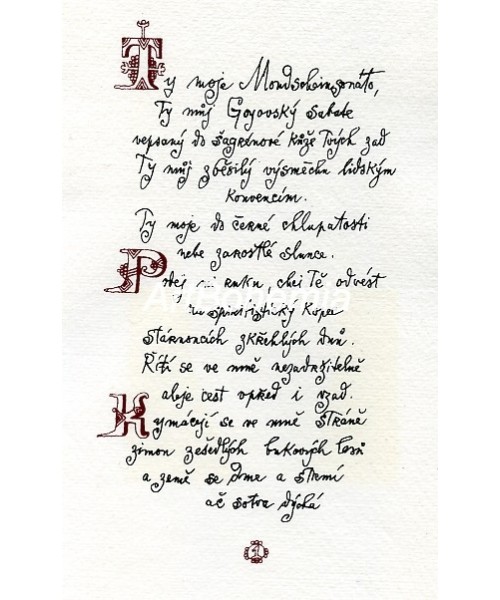 Ty moje Mondscheinsonáto,
Ty můj Goyovský sabate
vepsaný do šagrénové kůže Tvých zad
Ty můj zběsilý výsměchu lidským
konvencím.
Ty moje do černé chlupatosti
nebe zarostlé slunce.
Podej mi ruku, chci Tě odvést
spiritistický kupé
stárnoucích zkřehlých dnů.
Řítí se ve mně nezadržitelně
aleje cest vpřed i vzad.
Kymácejí se ve mně stráně
zimou zešedlých bukových lesů
a země se dme a strmí
ač sotva dýchá
ArtBohemia
1